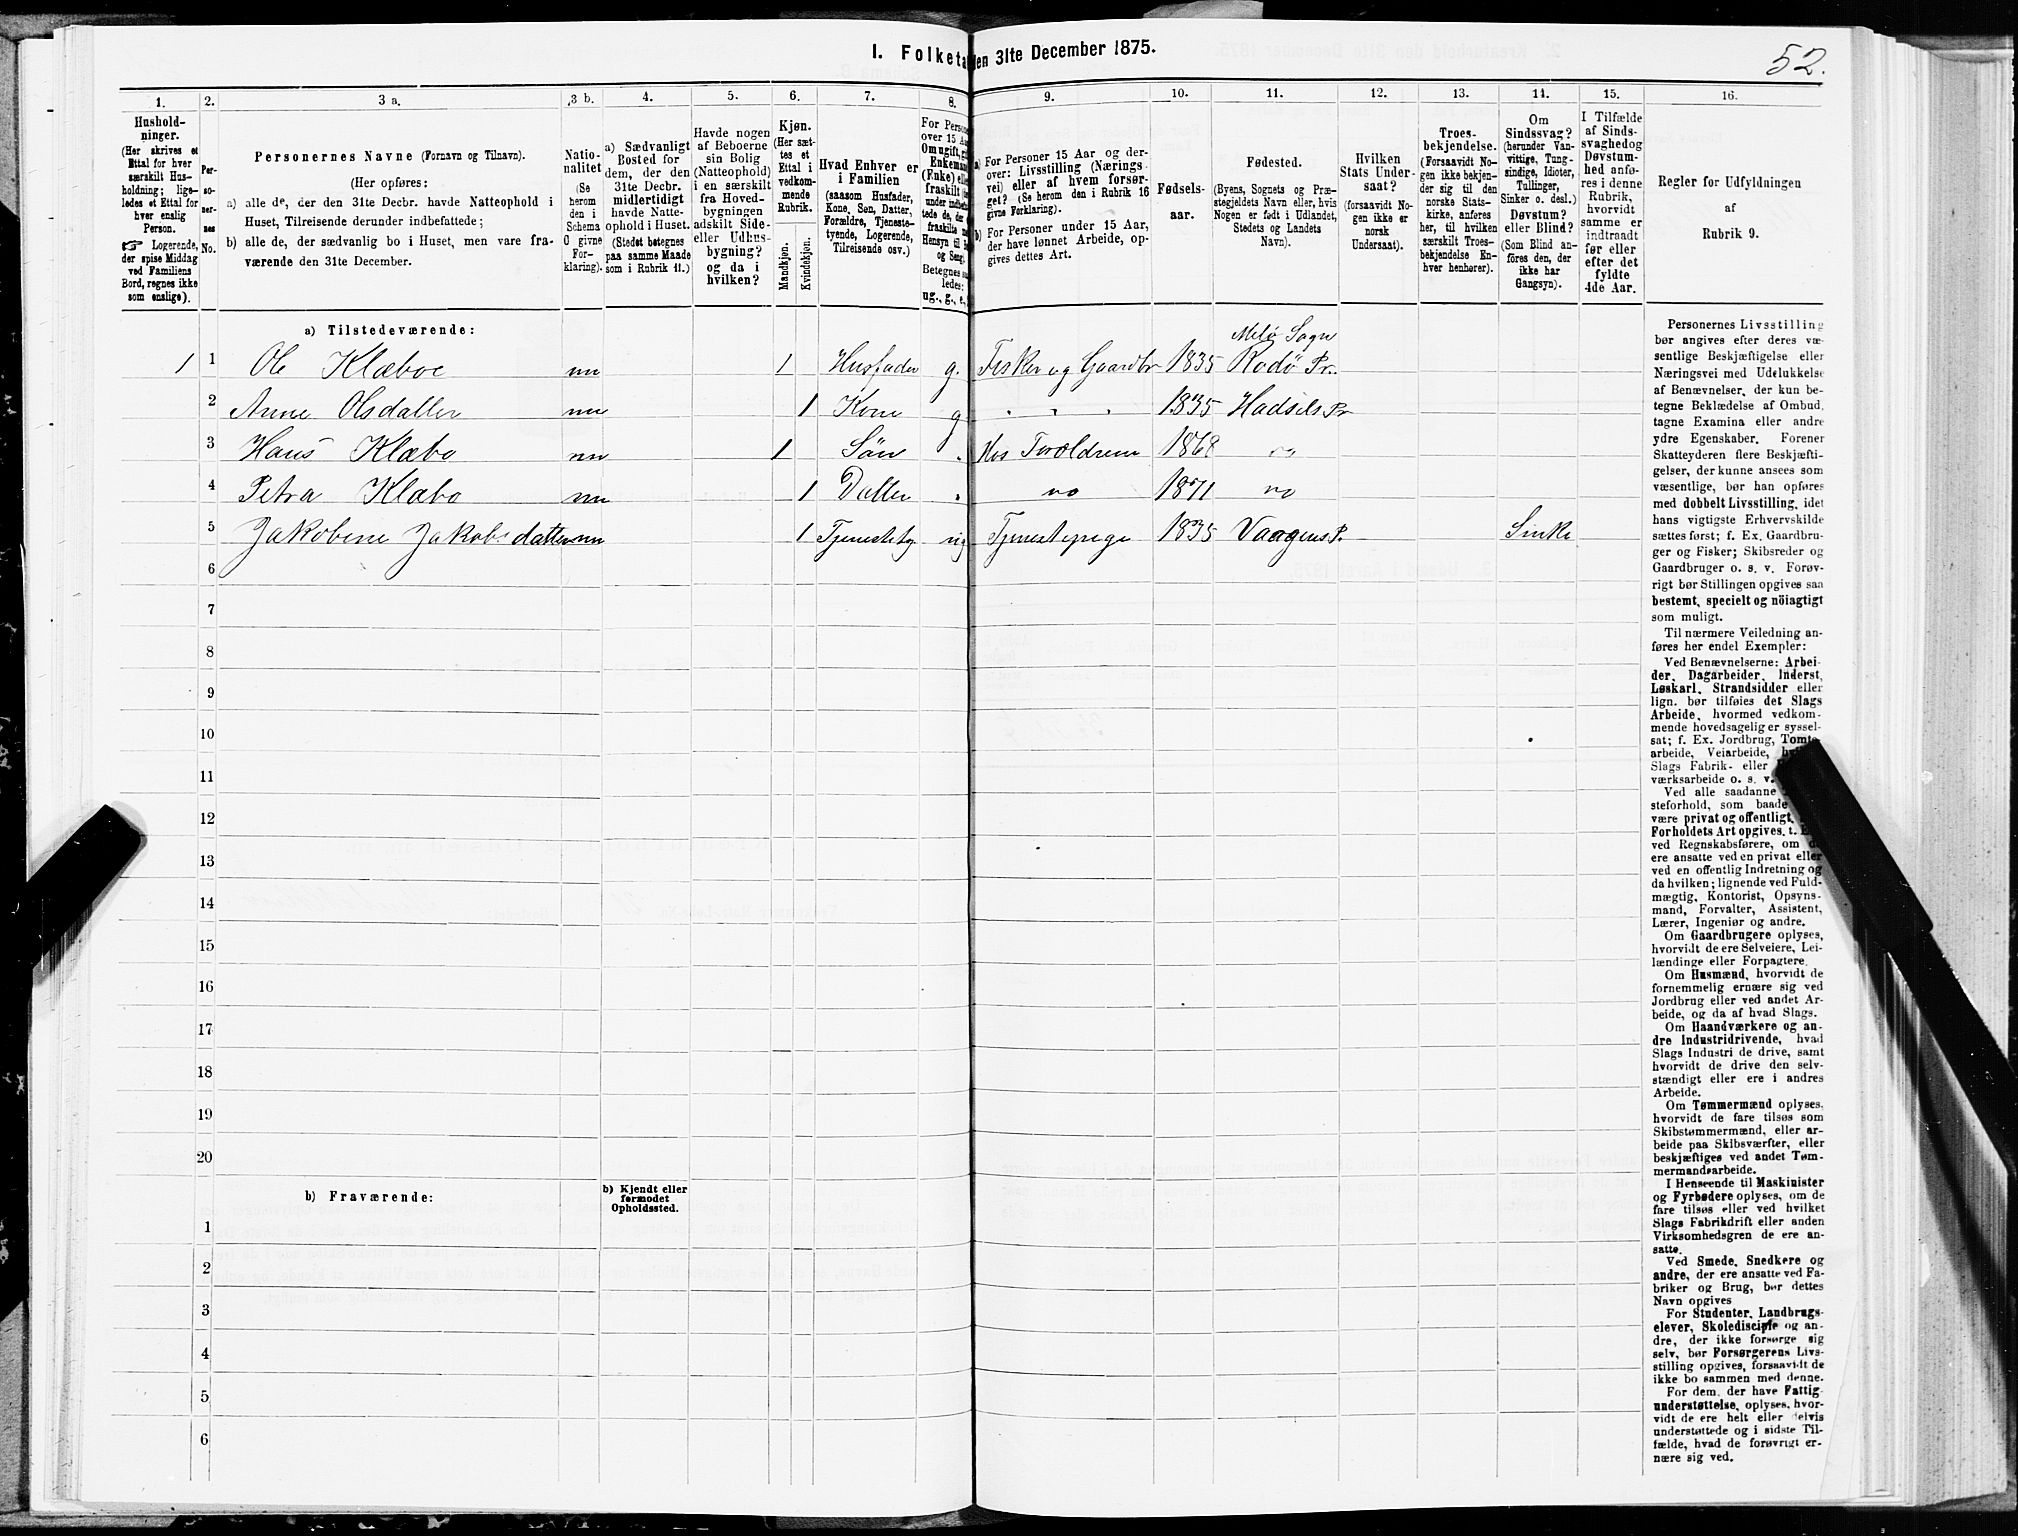 I. Folketa
en 31te December 1875.
52.
1.
2.
3 a.
3 b.
4.
5.
6.
7.
8.
9.
10.
11.
12.
13.
14.
15.
16.
Hushold-
ninger.
(Her skrives et
Ettal for hver
særskilt Hus-
holdning; lige-
ledes et Ettal for
hver enslig
Person.
☞ Logerende,
der spise Middag
ved Familiens
Bord, regnes ikke
som enslige).
Per-
so-
ner-
nes
No.
Personernes Navne (Fornavn og Tilnavn).
(Her opføres:
a) alle de, der den 31te Decbr. havde Natteophold i
Huset, Tilreisende derunder indbefattede;
b) alle de, der sædvanlig bo i Huset, men vare fra-
værende den 31te December.
Natio-
nalitet
(Se
herom
den i
Schema
O givne
For-
klaring).
a) Sædvanligt
Bosted for
dem, der den
31te Decbr.
midlertidigt
havde Natte-
ophold i Huset.
(Stedet betegnes
paa samme Maade
som i Rubrik 11.)
Havde nogen
af Beboerne
sin Bolig
(Natteophold)
i en særskilt
fra Hoved-
bygningen
adskilt Side-
eller Udhus-
bygning?
og da i
hvilken?
Kjøn.
(Her sæt-
tes et
Ettal i
vedkom-
mende
Rubrik.
Mandkjøn.
Kvindekjøn.
Hvad Enhver er
i Familien
(saasom Husfader,
Kone, Søn, Datter,
Forældre, Tjeneste-
tyende, Logerende,
Tilreisende osv.)
For Perso
over 15 Aa
Om ugift, g
Enkema
(Enke) el
fraskilt
under
tede de, d
fraskilte
Hensyn til
og Seng
Betegnes
ledes:
ug., g., e.,
a) For Personer 15 Aar og der-
over: Livsstilling (Nærings-
vei) eller af hvem forsør-
get? (Se herom den i Rubrik 16
givne Forklaring).
b) For Personer under 15 Aar,
der have lønnet Arbeide, op-
gives dettes Art.
Fødsels-
aar.
Fødested.
(Byens, Sognets og Præ-
stegjeldets Navn eller, hvis
Nogen er født i Udlandet,
Stedets og Landets
Navn).
Hvilken
Stats Under-
saat?
(forsaavidt No-
gen ikke er
norsk
Undersaat).
Troes-
bekjendelse.
(Forsaavidt No-
gen ikke bekjen-
der sig til den
norske Stats-
kirke, anføres
her, til hvilken
særskilt Troes-
bekjendelse En-
hver henhører).
Om
Sindssvag?
(herunder Van-
vittige, Tung-
sindige, Idioter,
Tullinger,
Sinker o. desl.)
Døvstum?
eller Blind?
(Som Blind an-
føres den, der
ikke har
Gangsyn).
I Tilfælde
af Sinds-
svaghed og
Døvstum-
hed anfø-
res i denne
Rubrik,
hvorvidt
samme er
indtraadt
før eller
efter det
fyldte
4de Aar.
Regler for Udfyldningen
af
Rubrik 9.
a) Tilstedeværende:
Melø Sogn
1 1 Ole Klæboe nn 1 Husfader g. Fisker og Gaardbr 1835 Rodø Pr.
2 Anne Olsdatter nn 1 Kone g " " " 1835 Hadsels Pr
3 Hans Klæbo nn 1 Søn . Hos Forældrene 1868 "
4 Petra Klæbo nn 1 Datter . " 1871 "
5 Jakobine Jakobsdatter nn 1 Tjenestety ug Tjenestepige 1835 Vaagens P. Sinke
6
7
8
9
10
11
12
13
14
15
16
17
18
19
20
b) Fraværende:
b) Kjendt eller
formodet
Opholdssted.
1
2
3
4
5
6
Personernes Livsstilling
bør angives efter deres væ-
sentlige Beskjæftigelse eller
Næringsvei med Udelukkelse
af Benævnelser, der kun be-
tegne Beklædelse af Ombud,
tagne Examina eller andre
ydre Egenskaber. Forener
Skatteyderen flere Beskjæfti-
gelser, der kunne ansees som
væsentlige, bør han opføres
med dobbelt Livsstilling, idet
hans vigtigste Erhvervskilde
sættes først; f. Ex. Gaardbru-
ger og Fisker; Skibsreder og
Gaardbruger o. s. v. Forøv-
rigt bør Stillingen opgives saa
bestemt, specielt og nöiagtigt
som muligt.
Til nærmere Veiledning an-
føres her endel Exempler:
Ved Benævnelserne: Arbei-
der, Dagarbeider, Inderst,
Løskarl, Strandsidder eller
lign. bør tilføies det Slags
Arbeide, hvormed vedkom-
mende hovedsagelig er syssel-
sat; f. Ex. Jordbrug, Tomte-
arbeide, Veiarbeide,
Slags Fabrik- eller
værksarbeide o. s. v.
Ved alle saadanne
steforhold, som baade
være privat og offentligt,
Forholdets Art opgives, t. E
ved Regnskabsførere, om d
ere ansatte ved en privat eller
ved en offentlig Indretning og
da hvilken; lignende ved Fuld-
mægtig, Kontorist, Opsyns-
mand, Forvalter, Assistent,
Lærer, Ingeniør og andre.
Om Gaardbrugere oplyses,
hvorvidt de ere Selveiere, Lei-
lændinge eller Forpagtere.
Om Husmænd, hvorvidt de
fornemmelig ernære sig ved
Jordbrug eller ved andet Ar-
beide, og da af hvad Slags.
Om Haandværkere og an-
dre Industridrivende, hvad
Slags Industri de drive, samt
hvorvidt de drive den selv-
stændigt eller ere i andres
Arbeide.
Om Tømmermænd oplyses,
hvorvidt de fare tilsøs som
Skibstømmermænd, eller ar-
beide paa Skibsværfter, eller
beskjæftiges ved andet Tøm-
mermandsarbeide.
I Henseende til Maskinister
og Fyrbødere oplyses, om de
fare tilsøs eller ved hvilket
Slags Fabrikdrift eller anden
Virksomhedsgren de ere an-
satte.
Ved Smede, Snedkere og
andre, der ere ansatte ved Fa-
briker og Brug, bør dettes
Navn opgives
For Studenter, Landbrugs-
elever, Skoledisciple og an-
dre, der ikke forsørge sig
selv, bør Forsørgerens Livs-
stilling opgives, forsaavidt de
ikke bo sammen med denne.
For dem, der have Fattig-
understøttelse, oplyses, hvor-
vidt de ere helt eller delvis
understøttede og i sidste Til-
fælde, hvad de forøvrigt er-
nære sig ved.